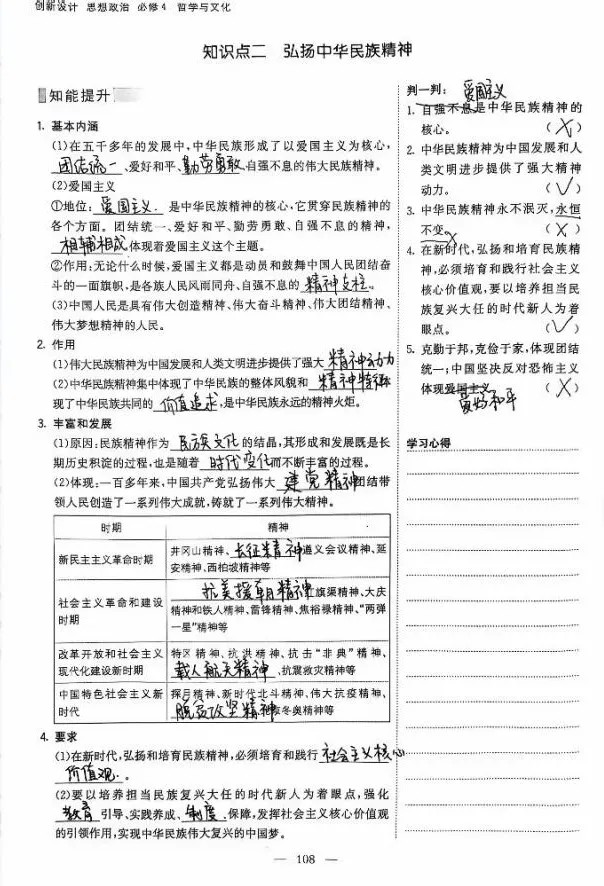 创新设计 思想政治 必修4 哲学与文化
知识点二 弘扬中华民族精神
知能提升
1. 基本内涵
(1)在五千多年的发展中,中华民族形成了以爱国主义为核心,
团结统一、爱好和平、勤劳勇敢、自强不息的伟大民族精神。
(2)爱国主义
①地位:爱国主义.是中华民族精神的核心,它贯穿民族精神的
各个方面。团结统一、爱好和平、勤劳勇敢、自强不息的精神,
相辅相成体现着爱国主义这个主题。
②作用:无论什么时候,爱国主义都是动员和鼓舞中国人民团结奋
斗的一面旗帜,是各族人民风雨同舟、自强不息的精神支柱。
(3)中国人民是具有伟大创造精神、伟大奋斗精神、伟大团结精神、
伟大梦想精神的人民。
2. 作用
(1)伟大民族精神为中国发展和人类文明进步提供了强大精神动力
(2)中华民族精神集中体现了中华民族的整体风貌和精神特征体
现了中华民族共同的价值追求,是中华民族永远的精神火炬。
3. 丰富和发展
(1)原因:民族精神作为民族文化的结晶,其形成和发展既是长
期历史积淀的过程,也是随着时代变化而不断丰富的过程。
(2)体现:一百多年来,中国共产党弘扬伟大建党精神团结带
领人民创造了一系列伟大成就,铸就了一系列伟大精神。
时期 精神
新民主主义革命时期 井冈山精神、长征精神遵义会议精神、延
安精神、西柏坡精神等
社会主义革命和建设
时期
抗美援朝精神红旗渠精神、大庆
精神和铁人精神、雷锋精神、焦裕禄精神、“两弹
一星”精神等
改革开放和社会主义
现代化建设新时期
特区精神、抗洪精神、抗击“非典”精神、
载人航天精神、抗震救灾精神等
中国特色社会主义新
时代
探月精神、新时代北斗精神、伟大抗疫精神、
脱贫攻坚精神冬奥精神等
4. 要求
(1)在新时代,弘扬和培育民族精神,必须培育和践行社会主义核心
价值观.。
(2)要以培养担当民族复兴大任的时代新人为着眼点,强化
教育引导、实践养成、制度保障,发挥社会主义核心价值观
的引领作用,实现中华民族伟大复兴的中国梦。
判一判:
爱国主义
1. 自强不息是中华民族精神的
核心。 (X)
2. 中华民族精神为中国发展和人
类文明进步提供了强大精神
动力。 (√)
3. 中华民族精神永不泯灭,永恒
不变。 (X)
4. 在新时代,弘扬和培育民族精
神,必须培育和践行社会主义
核心价值观,要以培养担当民
族复兴大任的时代新人为着
眼点。 (√)
5. 克勤于邦,克俭于家,体现团结
统一;中国坚决反对恐怖主义
体现爱国主义 (X)
爱好和平
学习心得
— 108 —